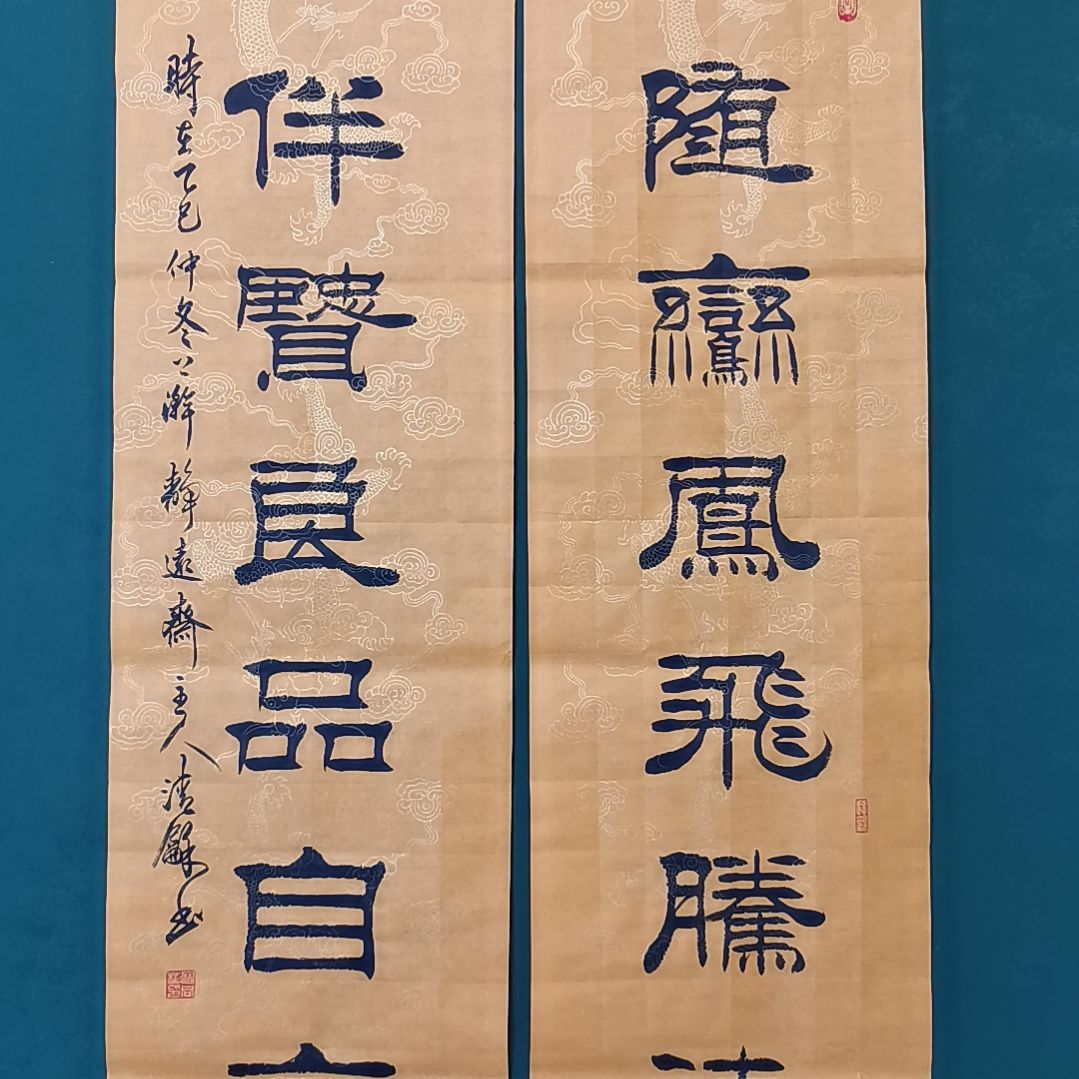 随鸞鳳飛騰
伴賢良品自
時在乙巳仲冬上澣靜遠齋主人清龢書